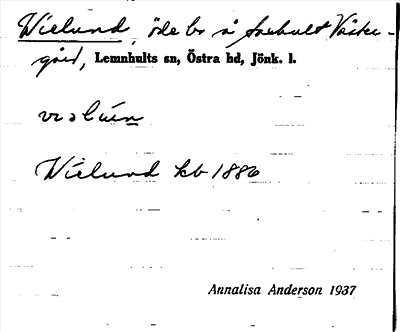 Wielund, öde bs å Sorhult Väster-
gård, Lemnhults sn, Östra hd, Jönk. l.
Wielund kb 1886
Annalisa Anderson 1937